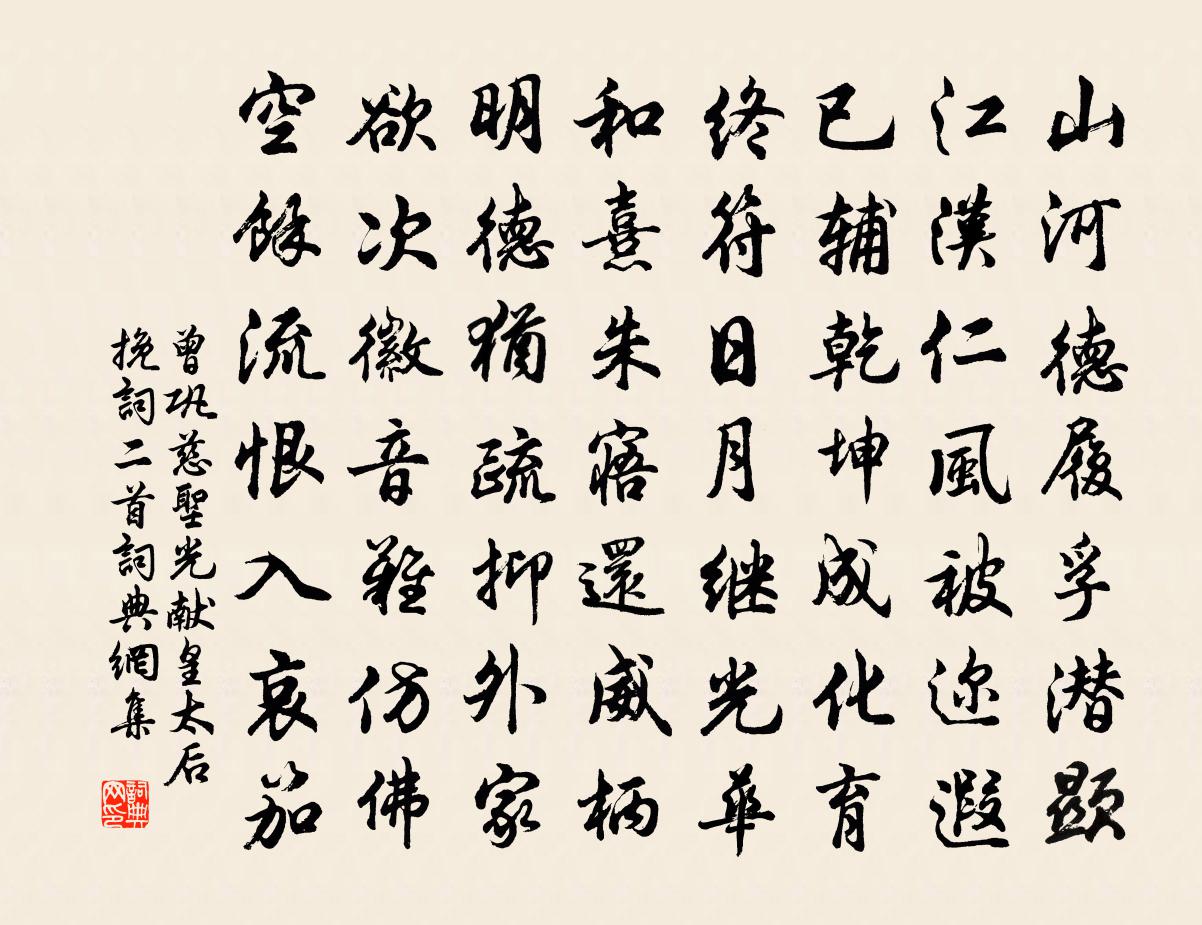 山河德履孚潜顯
江漢仁風被迩遐
已辅乾坤成化育
终符日月继光華
和熹朱寤還威柄
明德猶疏抑外家
欲次徽音難仿佛
空餘流恨入哀笳
曾巩慈聖光献皇太后
挽詞二首詞典網集
詞典
网印